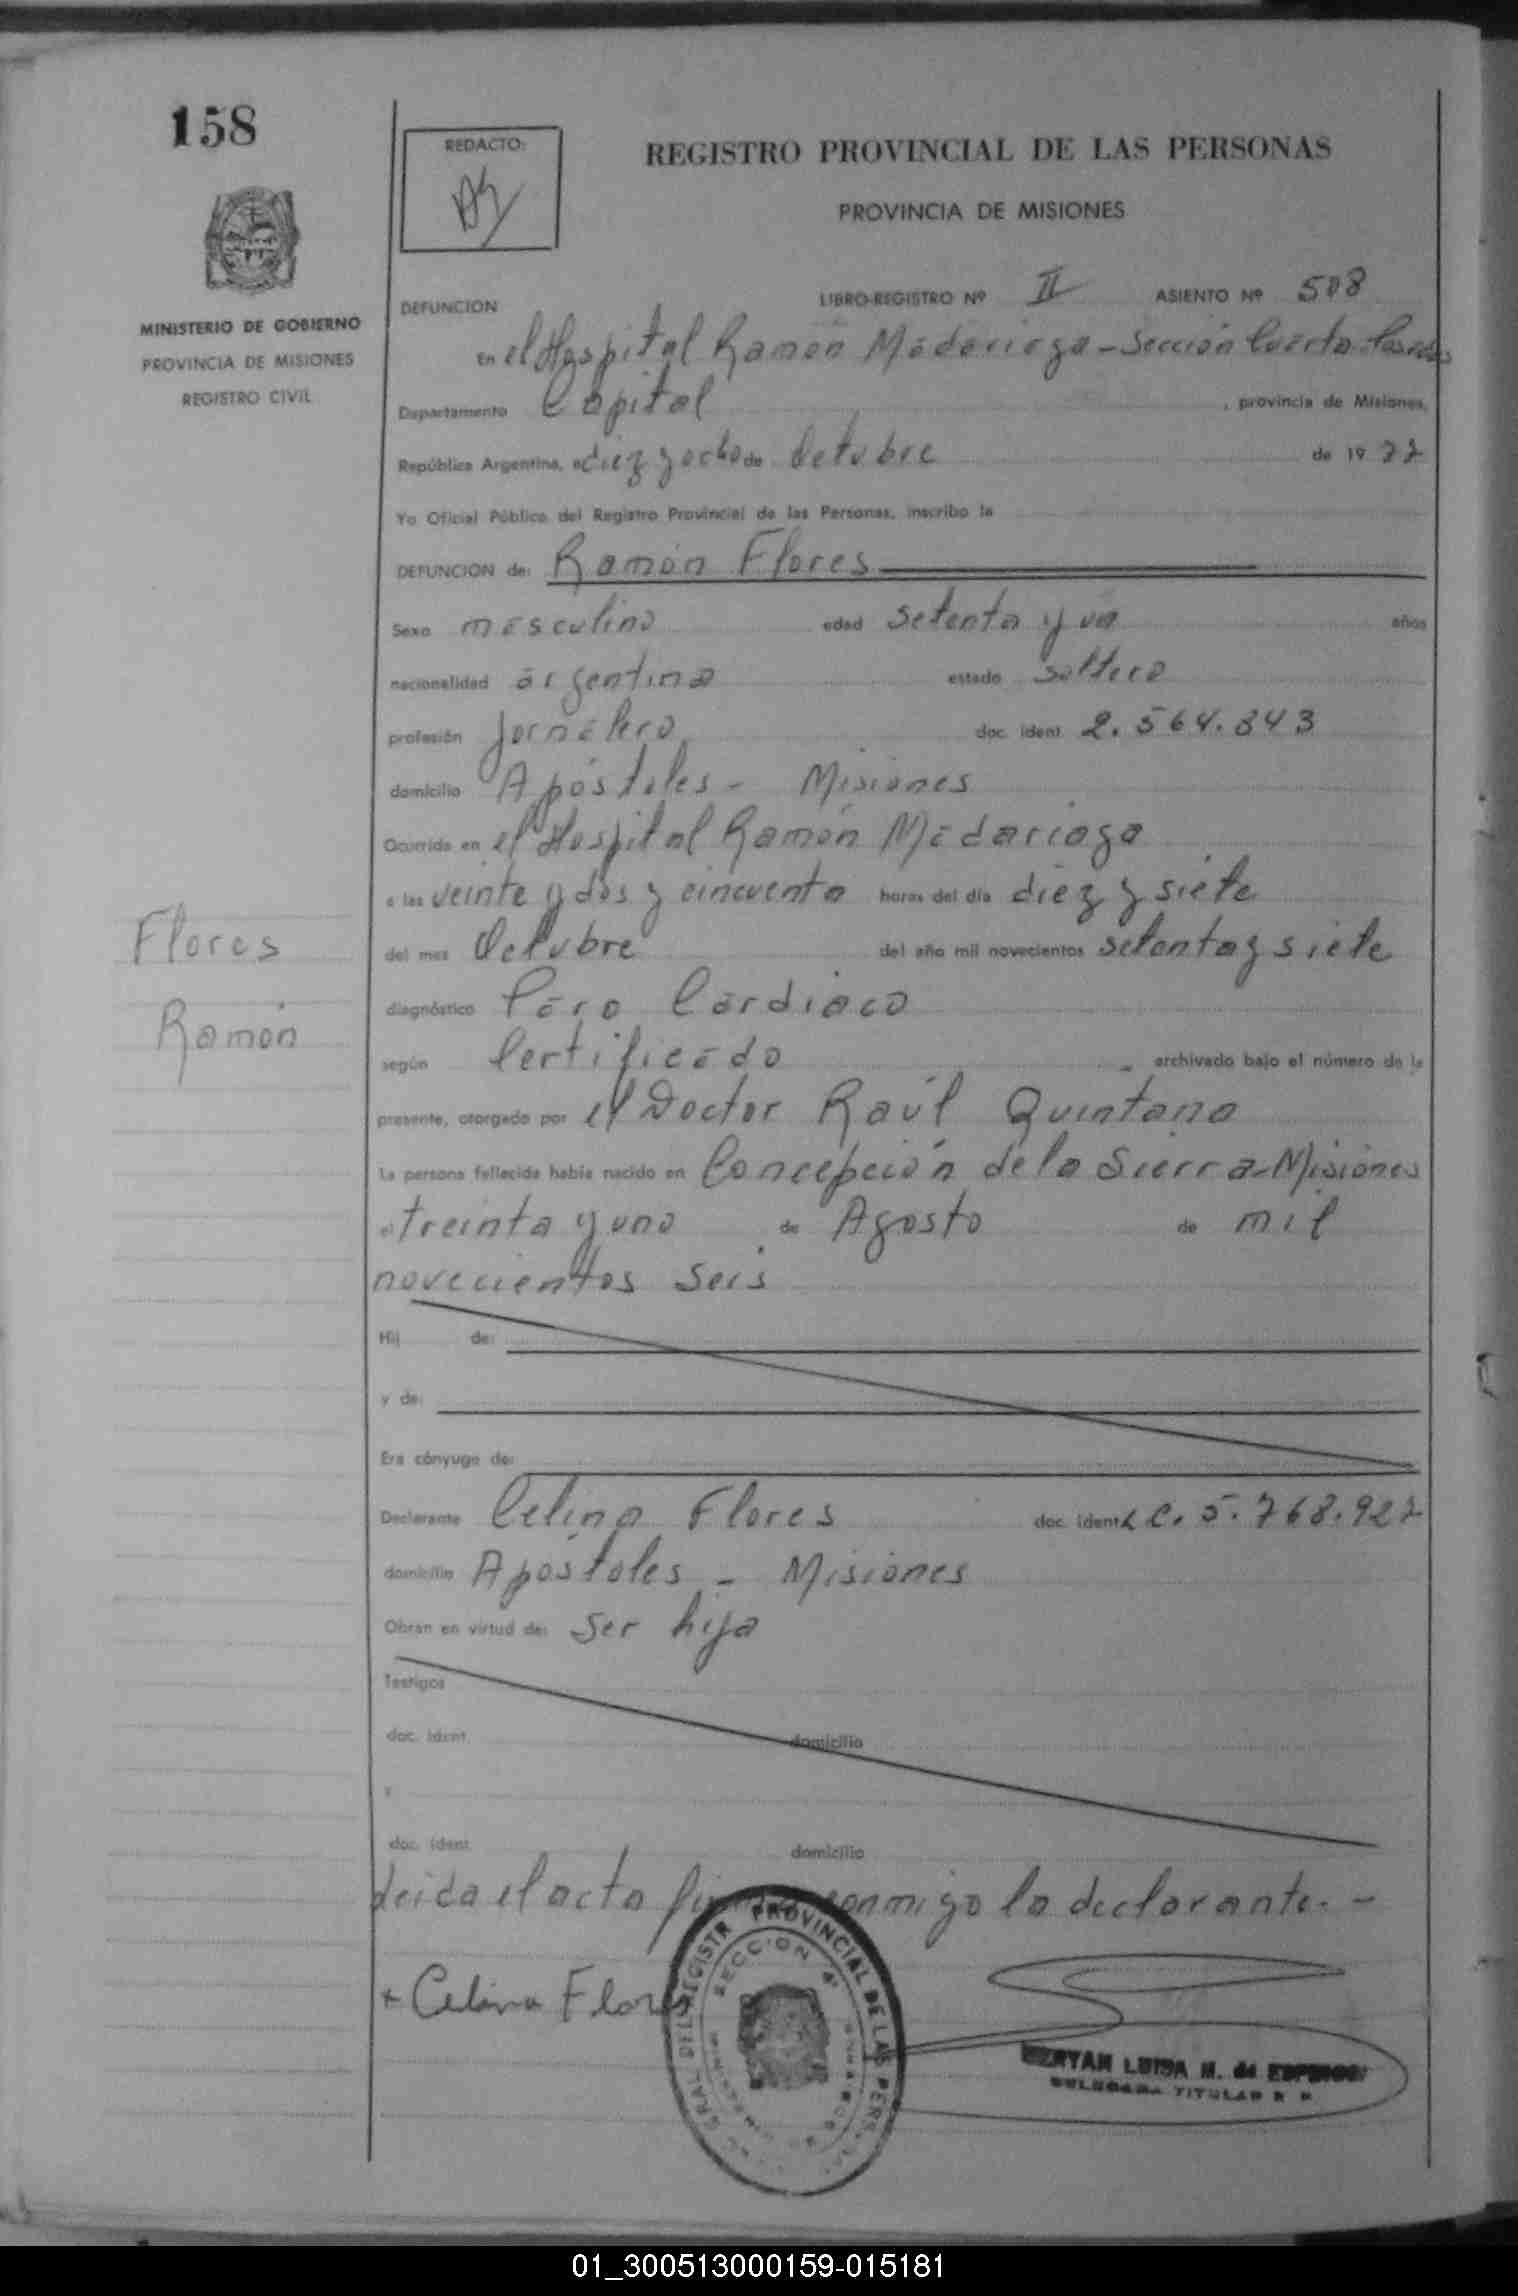 158
REDACTO:
REGISTRO PROVINCIAL DE LAS PERSONAS
PROVINCIA DE MISIONES
MINISTERIO DE GOBIERNO
PROVINCIA DE MISIONES
REGISTRO CIVIL
DEFUNCION LIBRO-REGISTRO Nº II ASIENTO Nº 508
En el Hospital Ramón Madariaga - Sección Cuarta - Posadas
Departamento Capital , provincia de Misiones,
República Argentina, a diez y ocho de Octubre de 1977
Yo Oficial Público del Registro Provincial de las Personas, inscribo la
DEFUNCION de: Ramón Flores
Sexo masculino edad setenta y un años
nacionalidad argentina estado soltero
profesión jornalero doc. ident. 2.564.843
domicilio Apóstoles - Misiones
Ocurrida en el Hospital Ramón Madariaga
a las veinte y dos y cincuenta horas del día diez y siete
del mes Octubre del año mil novecientos setenta y siete
diagnóstico Paro Cardiaco
según Certificado archivado bajo el número de la
presente, otorgado por el Doctor Raúl Quintana
La persona fallecida había nacido en Concepción de la Sierra - Misiones
el treinta y uno de Agosto de mil
novecientos seis
Flores
Ramón
Hij de:
y de:
Era cónyuge de:
Declarante Celina Flores doc. ident. L C. 5.768.927
domicilio Apóstoles - Misiones
Obran en virtud de: ser hija
Testigos
doc. ident. domicilio
y
doc. ident. domicilio
Leida el acta firma conmigo la declarante. -
+ Celina Flores
REGISTR PROVINCIAL DE LAS PERS.
SECCION 4ª
LUISA M. de
DELEGADA TITULAR R. P.
01_300513000159-015181